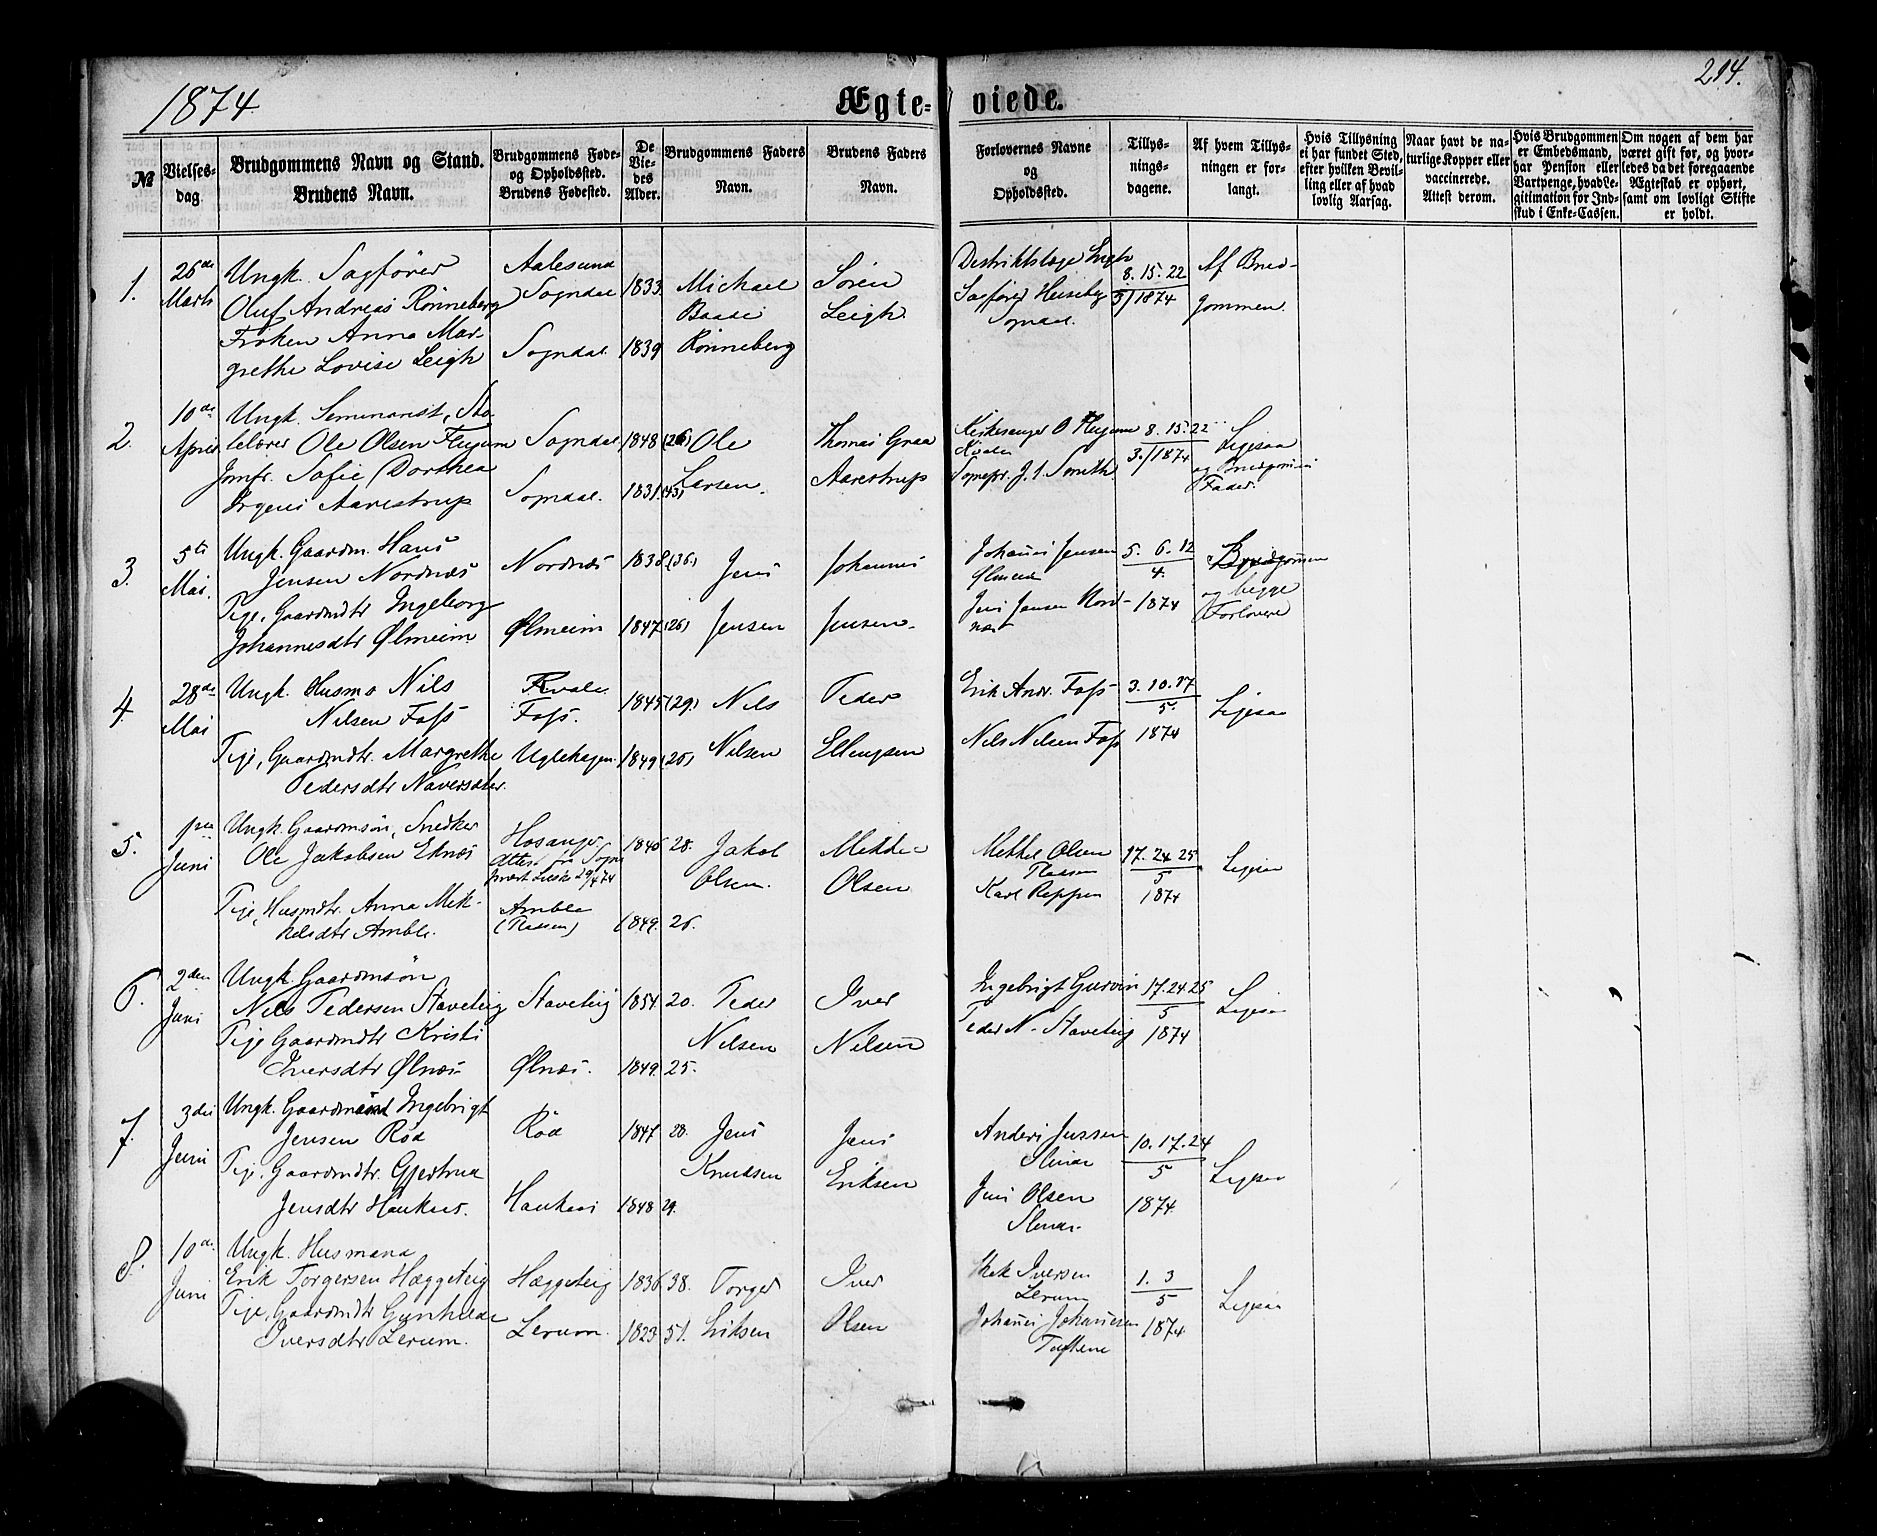 1874.
Ægte- viede.
214.
№
Vielses-
dag
Brudgommens Navn og Stand.
Brudens Navn.
Brudgommens Føde-
og Opholdssted.
Brudens Fødested.
De
Vie-
des
Alder.
Brudgommens Faders
Navn.
Brudens Faders
Navn.
Forlovernes Navne
og
Opholdssted.
Tillys-
nings-
dagene.
Af hvem Tillys-
ningen er for-
langt.
Hvis Tillysning
ei har fundet Sted,
efter hvilken Bevil-
ling eller af hvad
lovlig Aarsag.
Naar havt de na-
turlige Kopper eller
vaccinerede.
Attest derom.
Hvis Brudgommen
er Embedsmand,
har Pension eller
Vartpenge, hvad Le-
gitimation for Ind-
skud i Enke-Cassen.
Om nogen af dem har
været gift før, og hvor-
ledes da det foregaaende
Ægteskab er ophørt,
samt om lovligt Skifte
er holdt.
1.
26de
Marts
Ungk. Sagfører
Oluf Andreas Rønneberg
Frøken Anna Mar-
grethe Lovise Leigh
Aalesund
Sogndal
Sogndal
1833
1839
Michael
Rønneberg
Søren
Leigh
Sagfører Heiberg
Sogndal.
8. 15. 22
3/1874
Af Brud-
gommen.
2.
10de
April
Ungk. Seminarist,
Ole Olsen Flugum
Jomfr. Sofie Dorthea
Aarestrup
Sogndal
Sogndal.
1848 (26)
1831. (43)
Ole
Larsen.
Thomas Graa
Aarestrup
Kirkesanger O Flugum
Sognepr. J. S. Smith.
8. 15. 22
3./1874
Ligesaa
og Brudgommens
Fader.
3.
5te
Mai.
Ungk. Gaardm. Hans
Jensen Nordnæs
Pige, Gaardmdtr Ingeborg
Johannesdtr Ølmeim
Nordnæs
Ølmeim
1838 (36)
1847 (26)
Jens
Jensen
Johannes
Jensen.
Johannes Jensen
Ølmeim
Jens Jensen Nord-
næs
5. 6. 12
4.
1874
Brudgommen
og begge
Forlovere
4.
28de
Mai
Ungk. Husmd Nils
Nilsen Foss
Pige, Gaardmdtr. Margrethe
Pedersdtr Naversdter.
Kvale
Foss.
Uglehagen.
1845 (29)
1849 (25)
Nils
Nilsen
Peder
Ellingsen
Erik Andr. Foss
Nils Nilsen Foss
3. 10. 17
5
1874
Ligesaa
5.
Juni
Ungk. Gaardmsøn, Snedker
Ole Jakobsen Eknæs
Pige, Husmdtr. Anna Mek-
kelsdtr Amble.
Hosanger
Amble
(Plassen)
1846 28.
1849. 25.
Jakob
Olsen.
Mekkel
Olsen
Mekkel Olsen
Plassen
Karl Reppen
17. 24 25
5
1874
Ligesaa
6.
2den
Juni
Ungk. Gaardmsøn
Nils Pedersen Staveteig
Pige Gaardmdtr Kristi
Iversdtr Ølnæs
Staveteig
Ølnæs.
1854 20.
1849. 25.
Peder
Nilsen
Iver
Nilsen
Ingebrigt Gurvin
Peder N. Staveteig
17. 24. 25
5
1874
Ligesaa
7.
3die
Juni
Ungk. Gaardmand Ingebrigt
Jensen Rød
Pige. Gaardmdtr. Gjertrud
Jensdtr Haukaas.
Rød
Haukaas
1847 28.
1848 29.
Jens
Knudsen
Jens
Eriksen
Anders Jussen
Stenar
Jens Olsen
Stenar
10. 17. 24
5
1874.
Ligesaa
8.
10de
Juni
Ungk. Husmand
Erik Torgersen Hæggeteig
Pige, Gaardmdtr Gunhilde
Iversdtr Lerum.
Hæggeteig
Lerum.
1836 38.
1823 51.
Torger
Eriksen
Iver
Olsen
Iversen
Lerum
Johannes Johannesen
Tuftene
1. 3
5
1874.
Ligesaa